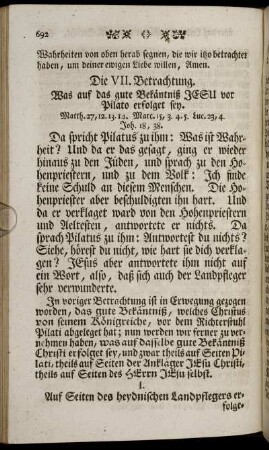 692
Wahrheiten von oben herab segnen, die wir itzo betrachtet
haben, um deiner ewigen Liebe willen, Amen.
Die VII. Betrachtung.
Was auf das gute Bekäntniß JESU vor
Pilato erfolget sey.
Matth. 27, 12. 13. 14. Marc. 15, 3. 4. 5. Luc. 23, 4.
Joh. 18, 38.
Da spricht Pilatus zu ihm: Was ist Wahr-
heit? Und da er das gesagt, ging er wieder
hinaus zu den Jüden, und sprach zu den Ho-
henpriestern, und zu dem Volk: Ich finde
keine Schuld an diesem Menschen. Die Ho-
henpriester aber beschuldigten ihn hart. Und
da er verklaget ward von den Hohenpriestern
und Aeltesten, antwortete er nichts. Da
sprach Pilatus zu ihm: Antwortest du nichts?
Siehe, hörest du nicht, wie hart sie dich verkla-
gen? JEsus aber antwortete ihm nicht auf
ein Wort, also, daß sich auch der Landpfleger
sehr verwunderte.
In voriger Betrachtung ist in Erwegung gezogen
worden, das gute Bekäntniß, welches Christus
von seinem Königreiche, vor dem Richterstuhl
Pilati abgeleget hat; nun worden wir ferner zu ver-
nehmen haben, was auf dasselbe gute Bekäntniß
Christi erfolget sey, und zwar theils auf Seiten Pi-
lati, theils auf Seiten der Ankläger JEsu Christi,
theils auf Seiten des HErrn JEsu selbst.
I.
Auf Seiten des heydnischen Landpflegers er-
folge-